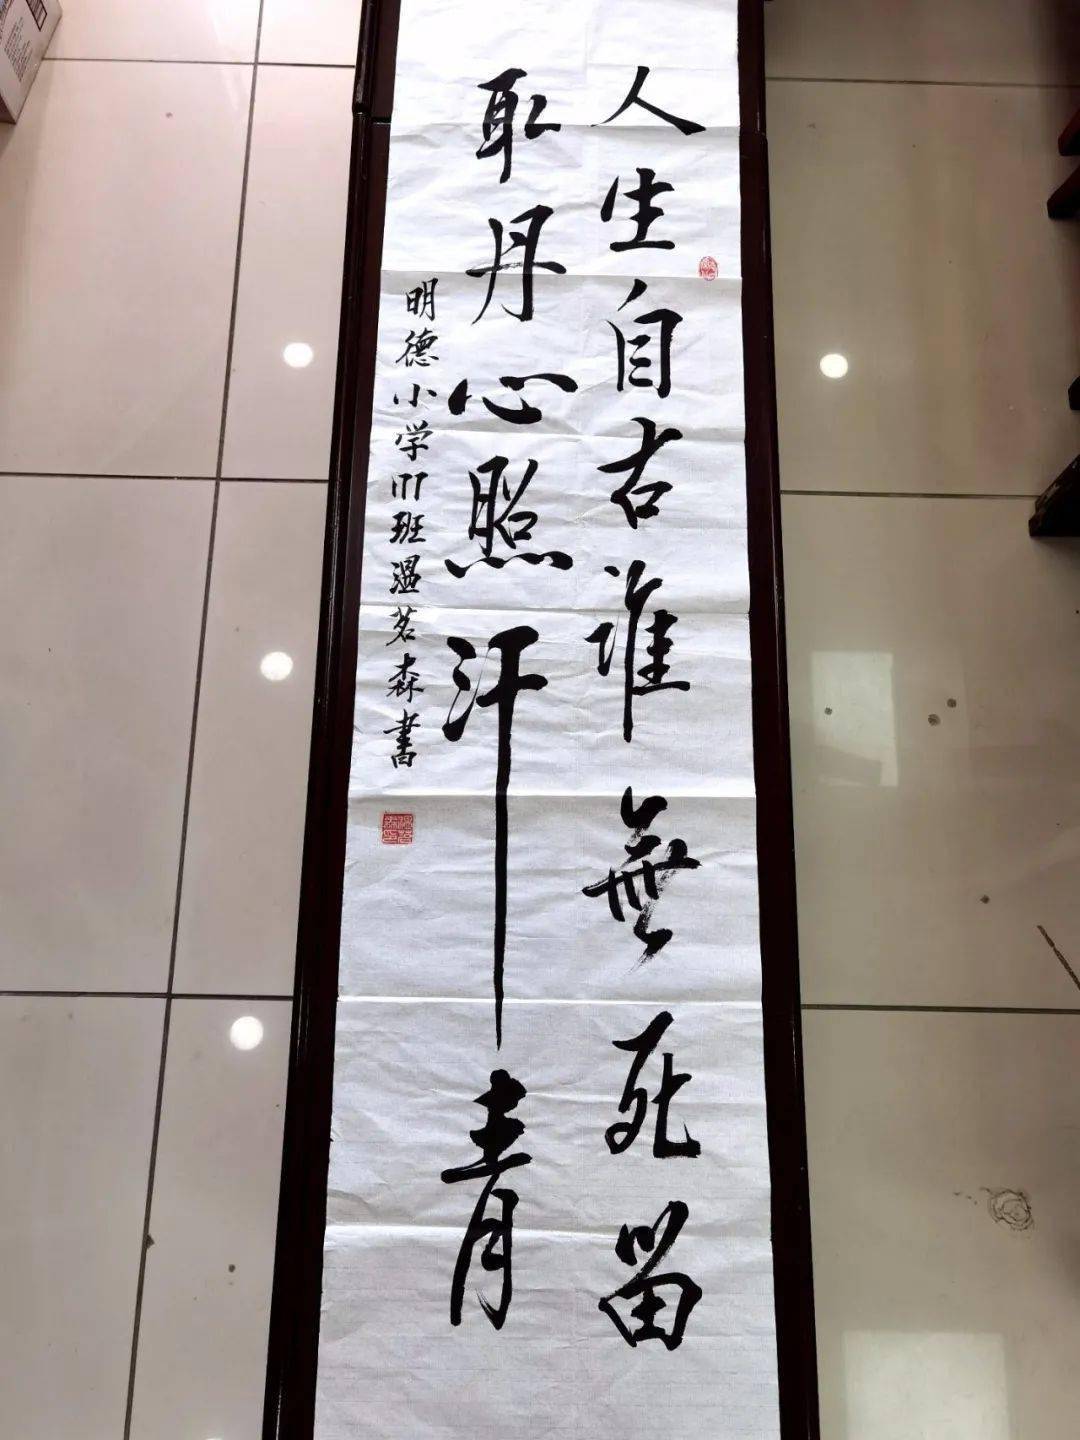 人生自古谁無死留
取丹心照汗青
明德小学171班温茗森書